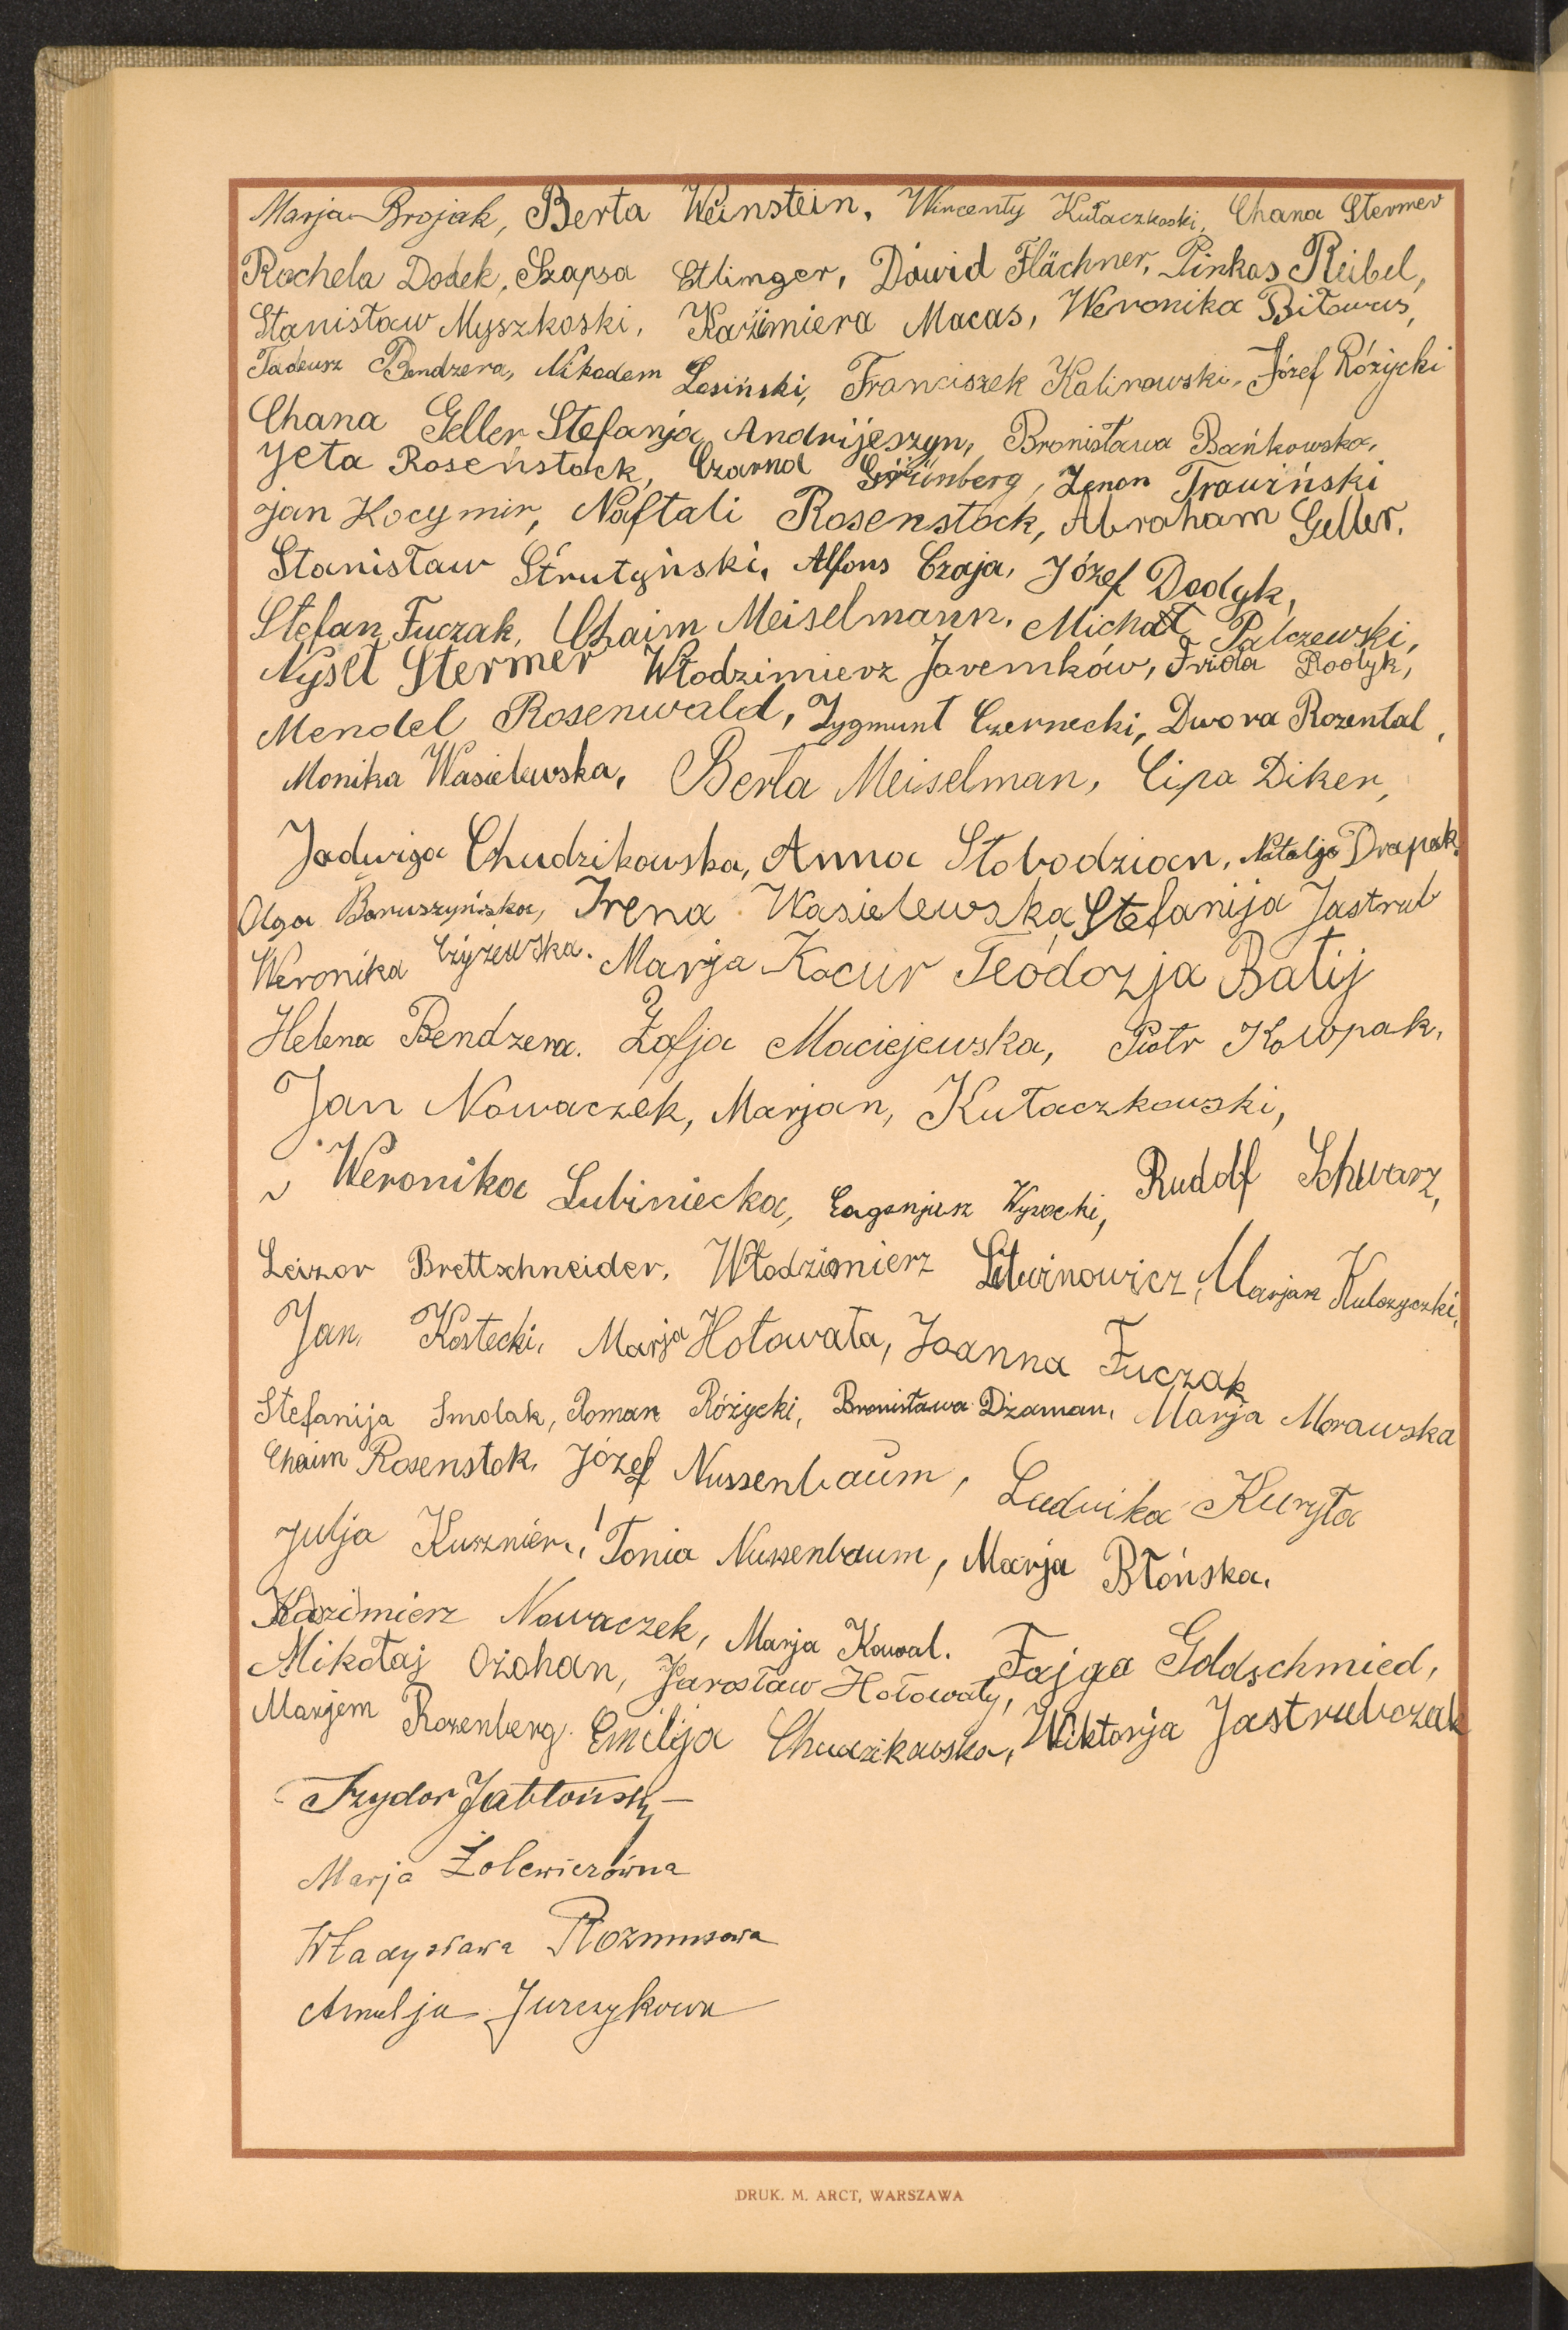 Marja Brojak, Berta Weinstein, Wincenty Kułaczkoski, Chana Stermer
Rachela Dodek, Szapsa Etlinger, Dawid Flächner, Pinkas Reibel,
Stanisław Myszkoski, Kazimiera Macas, Weronika Biławus,
Tadeusz Bendzera, Nikodem Losiński, Franciszek Kalinowski, Józef Różycki
Chana Geller Stefanja Andrijeszyn, Bronisława Bańkowska,
Jeta Rosenstock, Czarna Grünberg, Zenon Trawiński
Jan Kocymir, Naftali Rosenstock, Abraham Geller.
Stanisław Strutyński, Alfons Czaja, Józef Dodyk,
Stefan Fuczak, Chaim Meiselmann, Michał Palczewski,
Nyset Stermer Włodzimierz Jaremków, Frida Rodyk,
Mendel Rosenwald, Zygmunt Czernecki, Dwora Rozental,
Monika Wasielewska, Berta Meiselman, Cipa Diker,
Jadwiga Chudzikowska, Anna Słobodzian, Natalja Drapak.
Olga Banuszyńska, Irena Wasielewska Stefanija Jastrub
Weronika Czyżewska. Marja Kocur Teodozja Batij
Helena Bendzera. Zofja Maciejewska, Piotr Kowpak,
Jan Nowaczek, Marjan, Kułaczkowski,
Weronika Lubiniecka, Eugenjusz Wysocki, Rudolf Schwarz,
Leizor Brettschneider, Włodzimierz Litwinowicz, Marjan Kulczyczki,
Jan Kostecki, Marja Hołowata, Joanna Fuczak
Stefanija Smolak, Roman Różycki, Bronisława Dżaman, Marja Morawska
Chaim Rosenstok, Józef Nussenbaum, Ludwika Kuryła
Julja Kusznier, Tonia Nussenbaum, Marja Błońska.
Kazimierz Nowaczek, Marja Kowal. Fajga Goldschmied,
Mikołaj Ożohan, Jarosław Hołowaty,
Marjem Rozenberg. Emilja Chudzikowska, Wiktorja Jastrubczak
Izydor Jabłoński
Marja Żolewiczówna
Władysława Rozmusowa
Amalja Jurczykowa
DRUK. M. ARCT, WARSZAWA